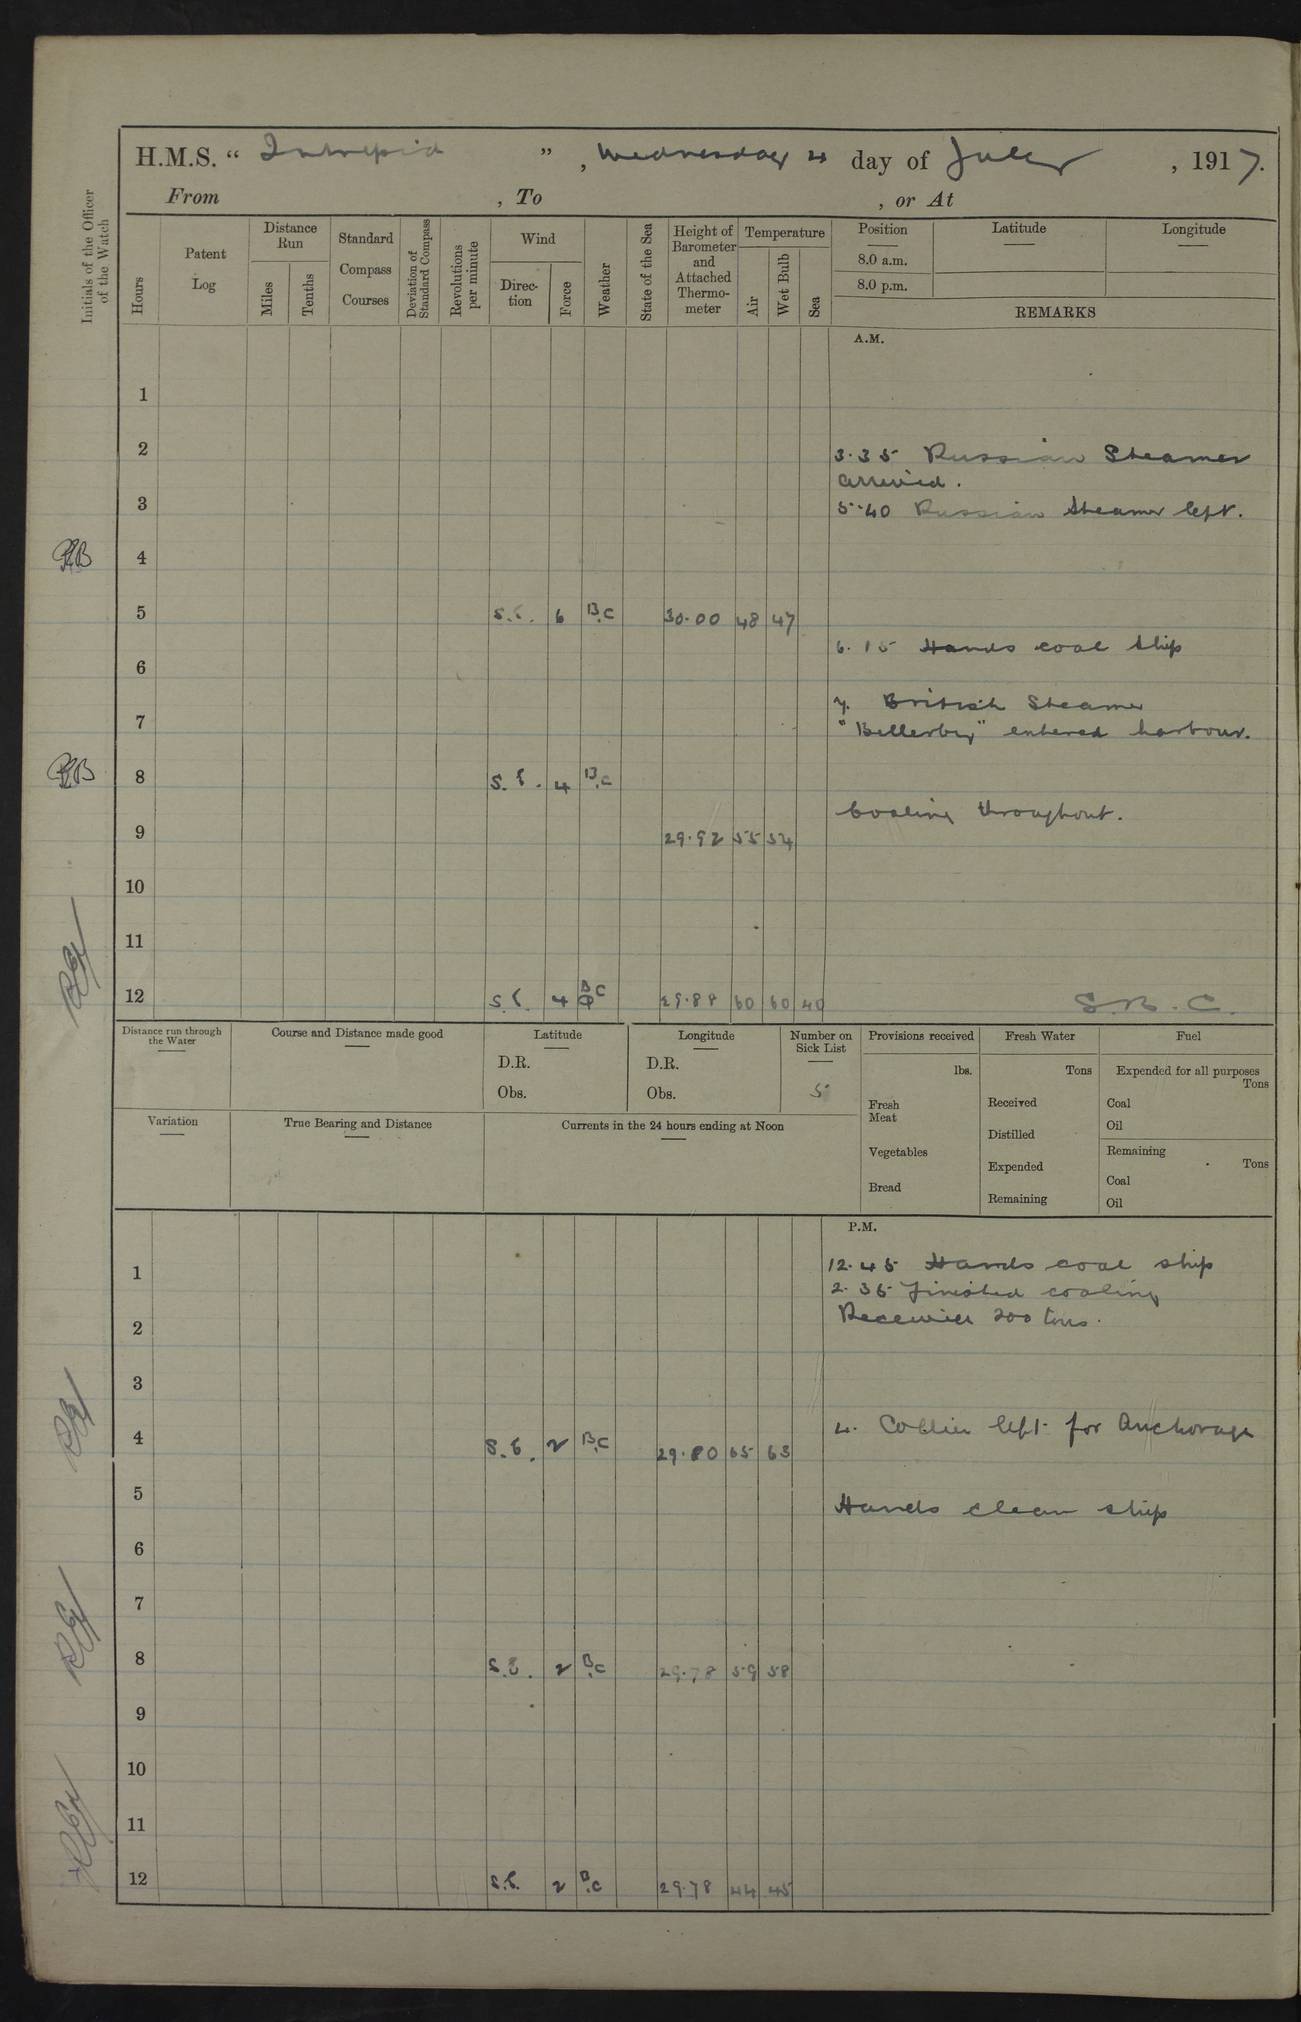 H.M.S. “ Intrepid ” , Wednesday 4 day of July , 1917.
From , To , or At
Initials of the Officer of the Watch
Hours
Patent Log
Distance Run
Miles
Tenths
Standard Compass Courses
Deviation of Standard Compass
Revolutions per minute
Wind
Direction
Force
Weather
State of the Sea
Height of Barometer and Attached Thermometer
Temperature
Air
Wet Bulb
Sea
Position
8.0 a.m.
8.0 p.m.
Latitude
Longitude
REMARKS
A.M.
1
2
3.35 Russian Steamer
arrived.
3
5.40 Russian Steamer left.
4
5 S.E. 6 B.C 30.00 48 47
6.15 Hands coal ship
6
7. British Steamer
7
"Bellerby" entered harbour.
8 S.E. 4 B.C
Coaling throughout.
9 29.92 55 54
10
11
12 S.E. 4 BC 29.88 60 60 40
Distance run through the Water
Course and Distance made good
Latitude
D.R.
Obs.
Longitude
D.R.
Obs.
Number on Sick List
5
Provisions received
lbs.
Fresh Meat
Vegetables
Bread
Fresh Water
Tons
Received
Distilled
Expended
Remaining
Fuel
Expended for all purposes
Tons
Coal
Oil
Remaining
Tons
Coal
Oil
Variation
True Bearing and Distance
Currents in the 24 hours ending at Noon
P.M.
1 12.45 Hands coal ship
2.35 Finished coaling
2 Received 200 tons.
3
4. Collier left for Anchorage
4 S.E. 2 B.C 29.80 65 63
5 Hands clean ship
6
7
8 S.E. 2 B.C 29.78 59 58
9
10
11
12 S.E. 2 B.C 29.78 44 45